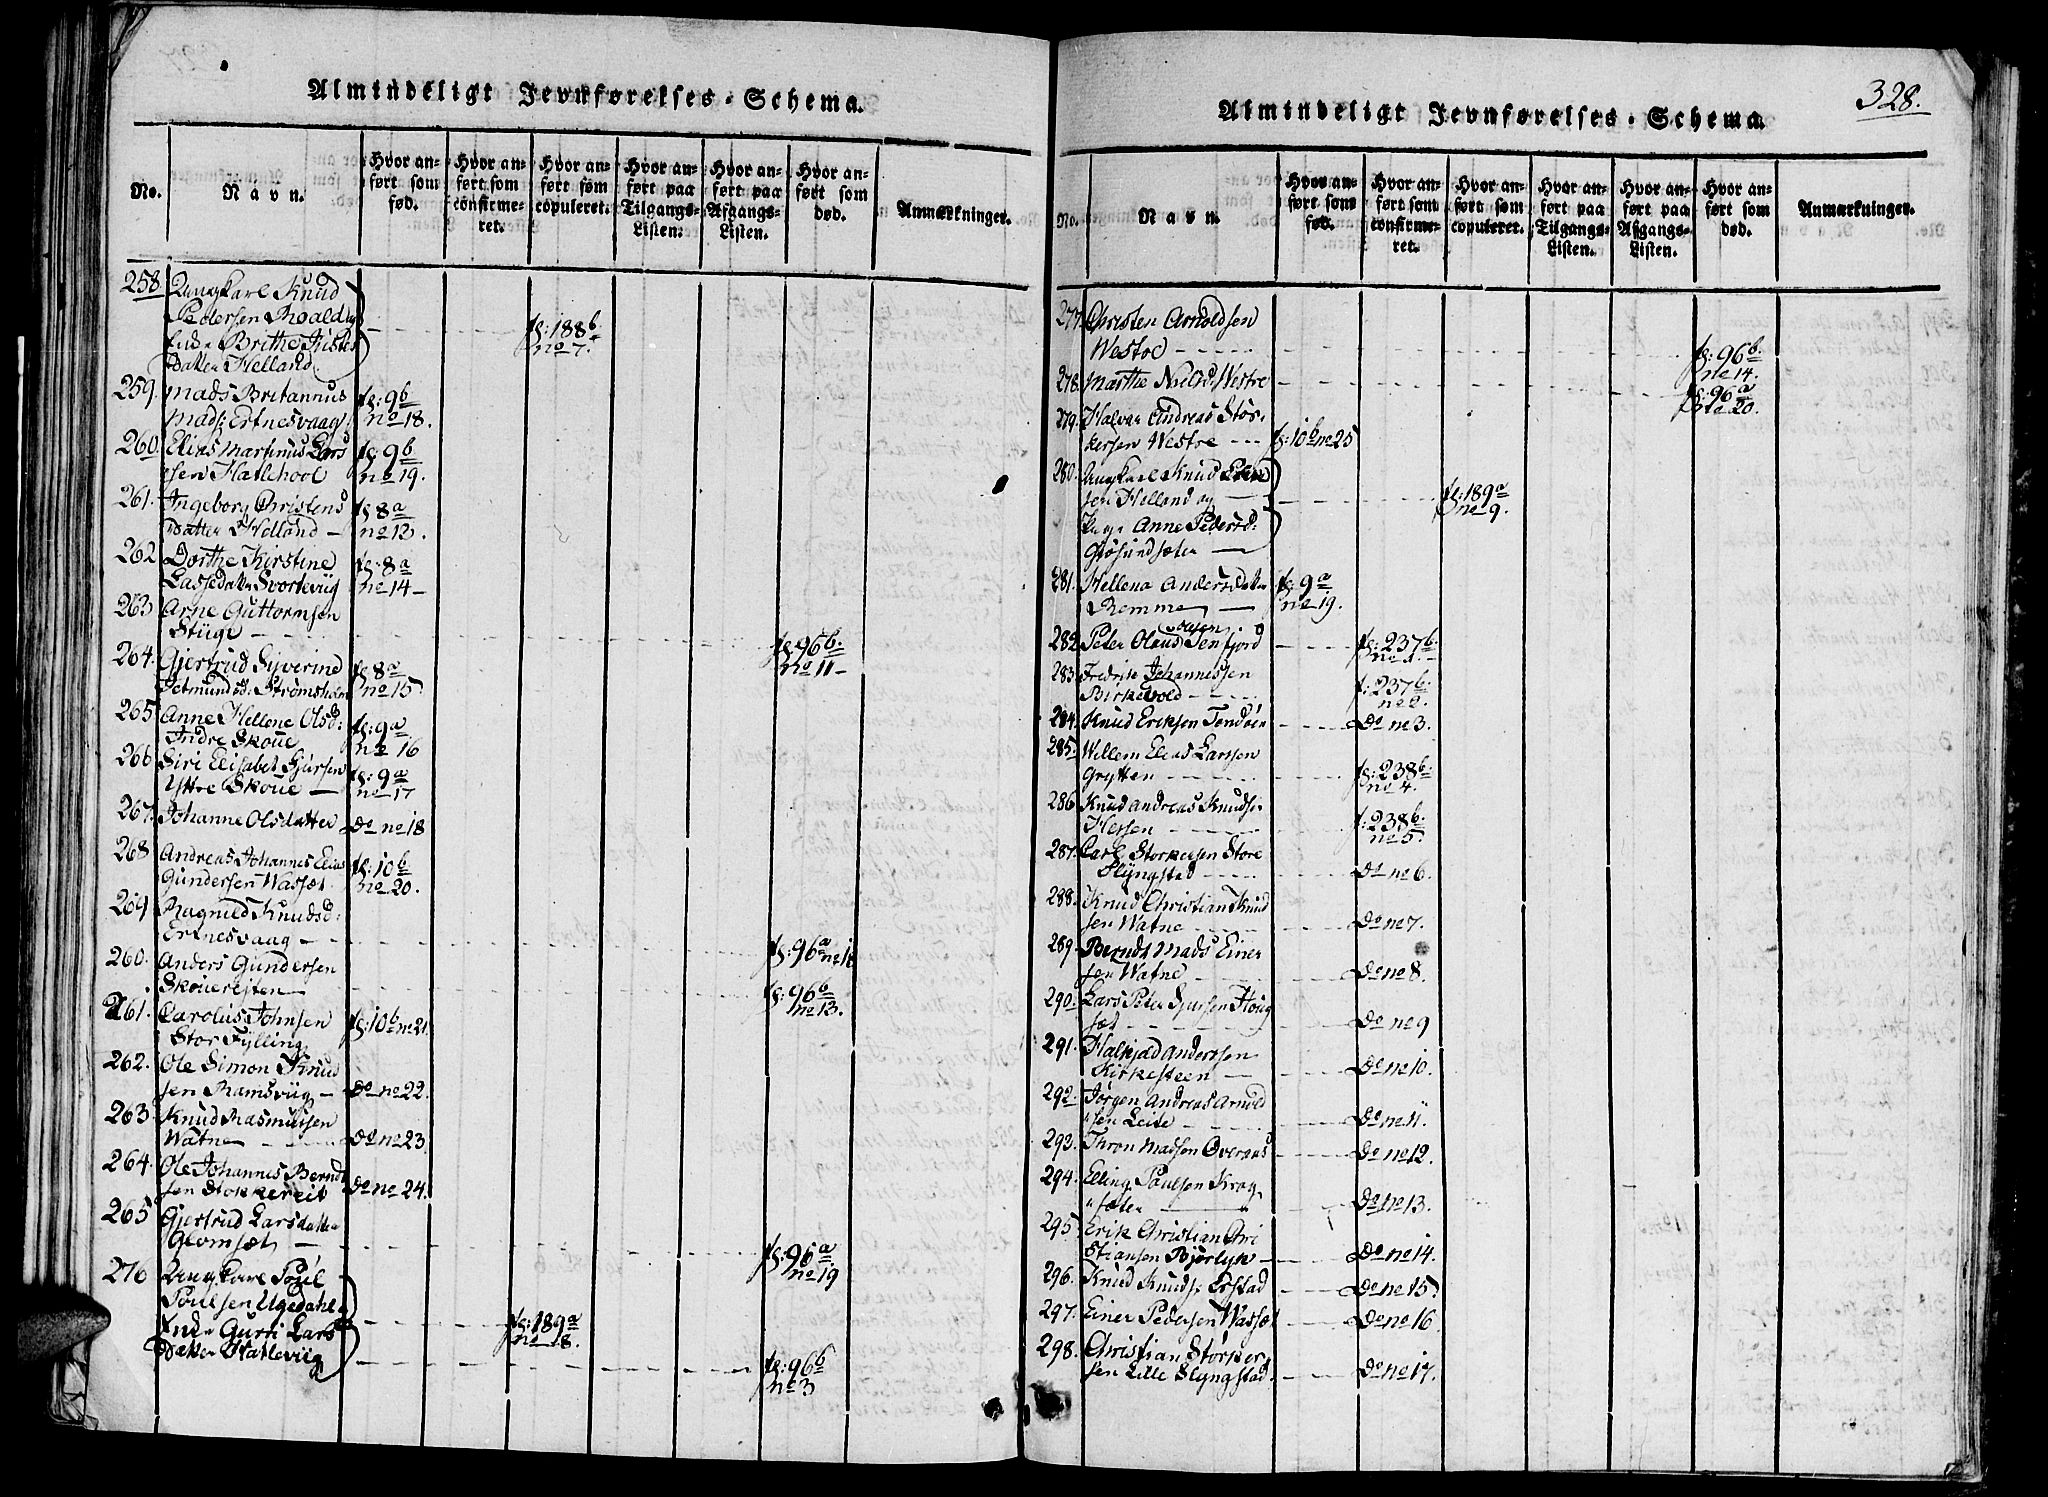 Almindeligt Jevnførelses-Schema.
No.
Navn.
Hvor anført som fød.
Hvor anført som confirmeret.
Hvor anført som copuleret.
Hvor anført paa Tilgangs-Listen.
Hvor anført paa Afgangs-Listen.
Hvor anført som død.
Anmærkninger.
258. Ungkarl Knud
Pedersen Roald og
Brithe
Datter Helland. fl: 188b no 7.
259. Mads Britannus fl: 9b
Mads: Ertnesvaag no 18.
260. Elias Martinus Lars fl: 9b
sen Hatlehool no 19.
261. Ingeborg Christens fl: 8a
Datter Helland – no 13.
262 Dorthe Kirstine fl: 8a
Lassedatter Svortevüg no 14 –
263 Arne Guttormsen
Stüge fl: 96b no 11 –
264. Gjertrud Syverine fl: 8a
Jetmundsd: Strømsholm no 15
265 Anne Hellene Olsd: fl: 9a
Indre Skoüe no 16
266 Siri Elisabet Sjursen fl: 9a
Yttre Skoüe – no 17
267. Johanne Olsdatter Do no 18
268 Andreas Johannes Elias fl: 10b
Gundersen Wassæt no 20.
269 Ragnild Knudsd:
Ertnesvaag fl: 96a
260. Anders Gundersen
Skouereiten fl: 96b no 13.
261. Carolus Johnsen fl: 10b no 21.
Stor Fylling
262. Ole Simon Knud
sen Ramsvüg – Do no 22.
263 Knud Rasmussen
Watne Do no 23.
264. Ole Johannes Bernd
sen Stokkereit Do no 24.
265 Gjertrud Larsdatter
Glomsæt fl: 96a no 19
276 Ungkarl Poül
Poulsen Ugedahl
Gurri Lars
Datter Hatlevüg fl: 189a no 18.
fl: 96b no 3
328.
Almindeligt Jevnførelses-Schema.
No.
Navn.
Hvor anført som fød.
Hvor anført som confirmeret.
Hvor anført som copuleret.
Hvor anført paa Tilgangs-Listen.
Hvor anført paa Afgangs-Listen.
Hvor anført som død.
Anmærkninger.
277. Christen Arnoldsen
Westre fl: 96b no 14.
278. Marthe Nielsd: Westre fl: 96a no 20.
279. Halvar Andreas Stor
kersen Westre fl: 10b no 25
280. Ungkarl Knud
sen Helland og fl: 189a no 9.
Anne Pedersd:
Gjøsündsæter
281. Hellena Andersdatter fl: 9a
Remme no 19.
282. Peter Olaus Olsen Tenfjord fl: 237b no 1.
283. Fredrik Johannessen
Birkevold fl: 237b no 2.
284. Knud Eriksen Tendøen Do no 3.
285. Willem Elias Larssen
Grytten fl: 238b no 4.
286 Knud Andreas Knuds:
Hessen fl: 238b no 5.
287. Carl Storkersen Store
Slyngstad Do no 6.
288. Knud Christian Knud
sen Watne Do no 7.
289. Berndt Mads Einer
sen Watne Do no 8.
290. Lars Peter Sjursen Houg
sæt Do no 9
291. Halkjæld Anderssen
Kirkesteen Do no 10.
292. Jørgen Andreas Arnold
sen Leite Do no 11.
293. Thron Madsen Overaas Do no 12.
294. Elling Paulsen Krog
sæter Do no 13.
295. Erik Christian Chri
stiansen Bjørlyk Do no 14.
296. Knud Knuds: Erstad Do no 15
297. Einer Pedersen Wassæt Do no 16
298. Christian Storker
sen Lille Slyngstad. Do no 17.